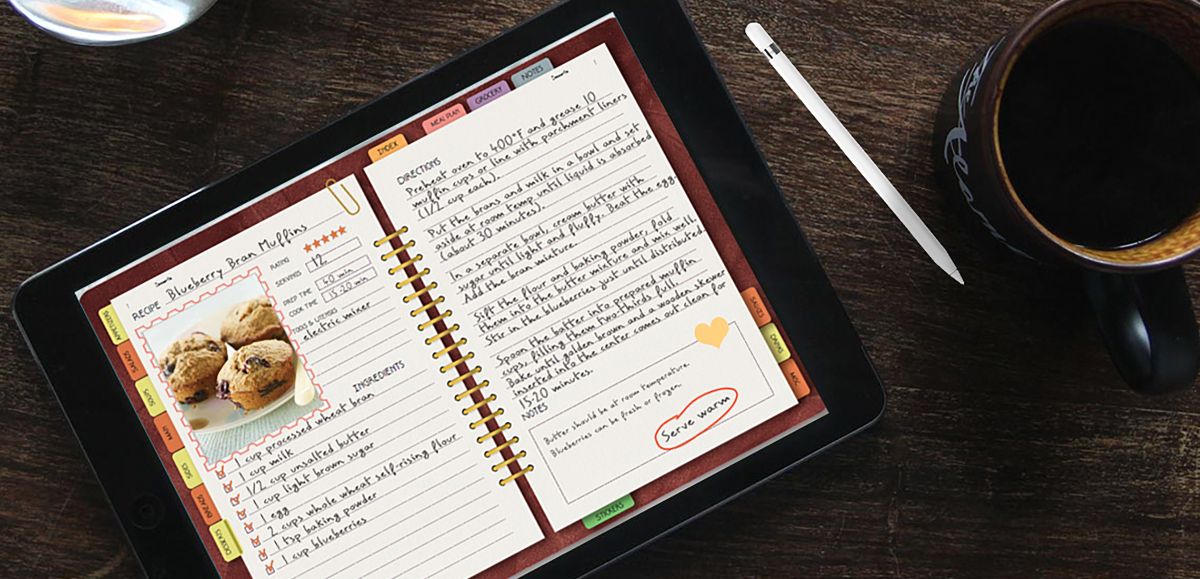 Desserts
RECIPE Blueberry Bran Muffins
RATING
SERVINGS 12
PREP TIME 40 min
COOK TIME 15-20 min
TOOLS & UTENSILS
electric mixer
INGREDIENTS
1 cup processed wheat bran
1 cup milk
1/2 cup unsalted butter
1 cup light brown sugar
1 egg
2 cups whole wheat self-rising flour
1 tsp baking powder
1 cup blueberries
APPETIZERS
SALADS
SOUPS
MAIN
SIDES
BREADS
DESSERTS
INDEX
MEAL PLAN
GROCERY
NOTES
Desserts
DIRECTIONS
Preheat oven to 400°F and grease 10
muffin cups or line with parchment liners
(1/2 cup each).
Put the brans and milk in a bowl and set
aside at room temp until liquid is absorbed
(about 30 minutes).
In a separate bowl, cream butter with
sugar until light and fluffy. Beat the egg.
Add the bran mixture.
Sift the flour and baking powder, fold
them into the butter mixture and mix well.
Stir in the blueberries just until distributed.
Spoon the batter into prepared muffin
cups, filling them two-thirds full.
Bake until golden brown and a wooden skewer
inserted into the center comes out clean for
15-20 minutes.
NOTES
Butter should be at room temperature.
Blueberries can be fresh or frozen.
Serve warm
MISC.
STICKERS